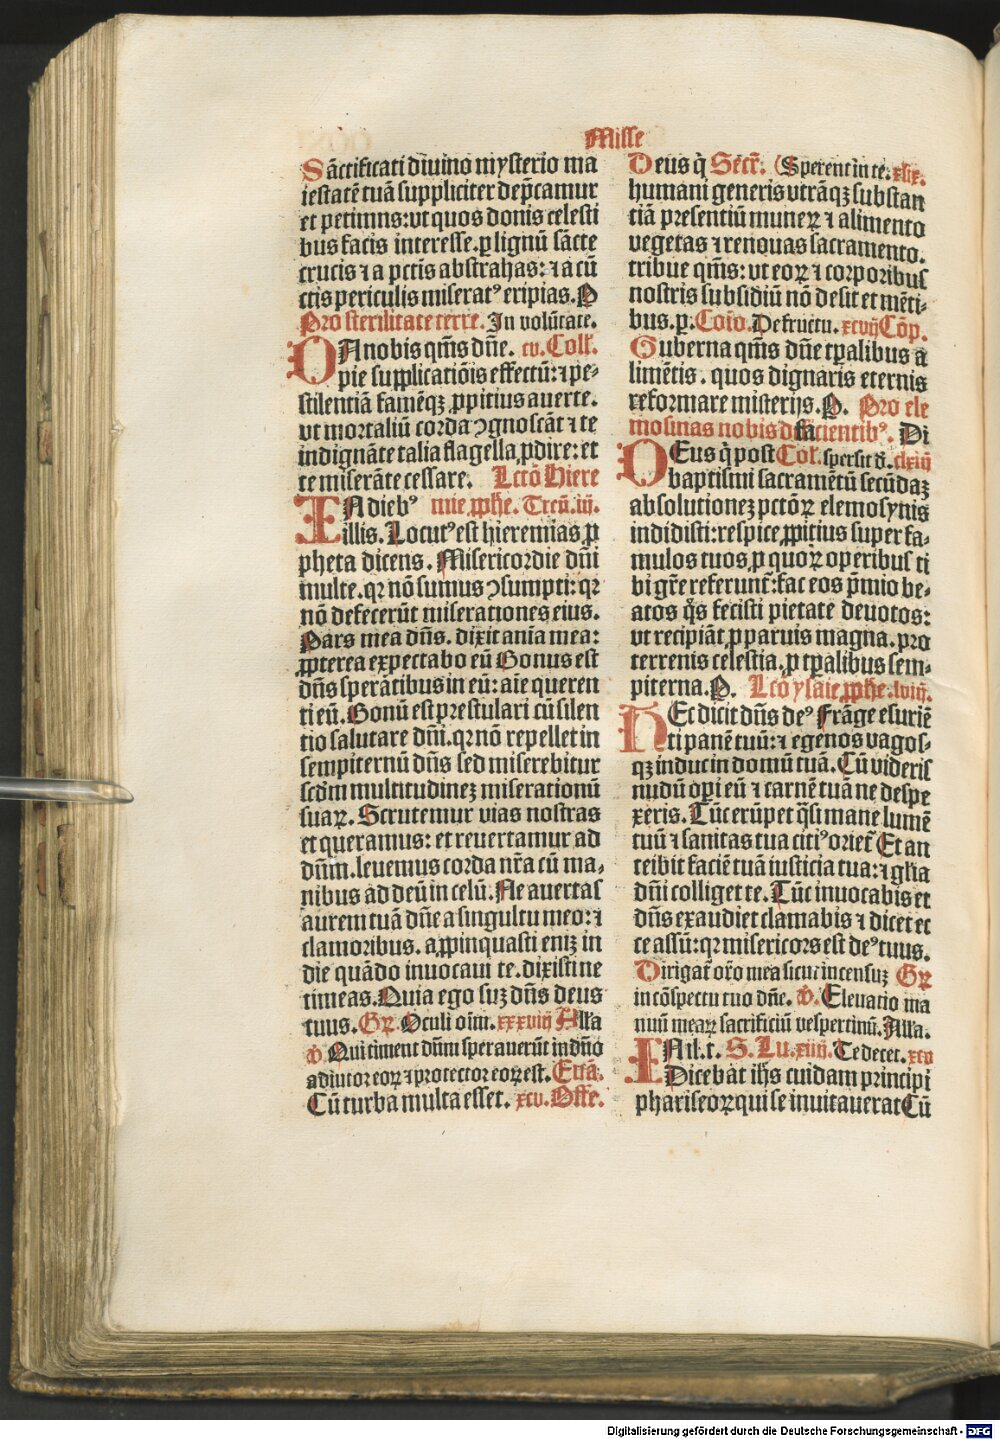 Misse
Sāctificati diuino mysterio ma
iestatē tuā suppliciter dep̄camur
et petimus: vt quos donis celesti
bus facis interesse. ꝑ lignū sācte
crucis ⁊ a pctīs abstrahas: ⁊ a cū
ctis periculis miseratꝰ eripias. P
Pro sterilitate terre. In volūtate.
DA nobis qm̄s dn̄e. cv. Coll'.
pie supplicatiōis effectū: ⁊ pe-
stilentiā famēqꝫ ꝓpitius auerte.
vt mortaliū corda ꝯgnoscāt ⁊ te
indignāte talia flagella ꝓdire: et
te miserāte cessare. Lctō Hiere
IN diebꝰ mie ꝓphe. Treñ. iij.
illis. Locutꝰ est hieremias ꝓ
pheta dicens. Misericordie dn̄i
multe. qꝛ nō sumus ꝯsumpti: qꝛ
nō defecerūt miserationes eius.
Pars mea dn̄s. dixit anīa mea:
ꝓpterea expectabo eū Bonus est
dn̄s sperātibus in eū: aīe queren
ti eū. Bonū est prestulari cū silen
tio salutare dn̄i. qꝛ nō repellet in
sempiternū dn̄s sed miserebitur
scdm̄ multitudinez miserationū
suaꝝ. Scrutemur vias nostras
et queramus: et reuertamur ad
dn̄m. leuemus corda nr̄a cū ma-
nibus ad deū in celū. Ne auertas
aurem tuā dn̄e a singultu meo: ⁊
clamoribus. appinquasti eniꝫ in
die quādo inuocaui te. dixisti ne
timeas. Quia ego suꝫ dn̄s deus
tuus. Gꝝ. Oculi oīm. xxxviij Alla
v̄ Qui timent dūm sperauerūt in dn̄o
adiutor eoꝝ ⁊ protector eoꝝ est. Ectā.
Cū turba multa esset. xcv. Offe.
Deus q̇ Secr̄. (Sperent in te. xlix.
humani generis vtrāqꝫ substan
tiā presentiū muneꝝ ⁊ alimento
vegetas ⁊ renouas sacramento.
tribue qm̄s: vt eoꝝ ⁊ corporibus
nostris subsidiū nō desit et mēti-
bus. ꝑ. Coīo. De fructu. xcvij Cōp.
Guberna qm̄s dn̄e tꝑalibus a
limētis. quos dignaris eternis
reformare misterijs. P. Pro ele
mosinas nobis d facientibꝰ. Di
DEus q̇ post Col'. spersit d. clxiij
baptismi sacramētū secūdaꝫ
absolutionez pctōꝝ elemosynis
indidisti: respice ꝓpitius super fa-
mulos tuos, ꝑ quoꝝ operibus ti
bi gr̄e referunt̄: fac eos p̄mio be-
atos q̄s fecisti pietate deuotos:
vt recipiāt ꝑ paruis magna. pro
terrenis celestia. ꝑ tꝑalibus sem-
piterna. P. Lctō ysaie ꝓphe. lviij.
HEc dicit dn̄s deꝰ Frāge esuriē
ti panē tuū: ⁊ egenos vagos-
qꝫ induc in domū tuā. Cū videris
nudū operi eū ⁊ carnē tuā ne despe
xeris. Tūc erūpet q̄si mane lumē
tuū ⁊ sanitas tua citiꝰ orieť Et an
teibit faciē tuā iusticia tua: ⁊ glīa
dn̄i colliget te. Tūc inuocabis et
dn̄s exaudiet clamabis ⁊ dicet ec
ce assū: qꝛ misericors est deꝰ tuus.
Dirigať or̄o mea sicut incensuꝫ Gꝝ
in cōspectu tuo dn̄e. v̄. Eleuatio ma
nuū meaꝝ sacrificiū vespertinū. Alla.
IN il. t. S. Lu. xiiij. Te decet. xcv
Dicebat ih̄s cuidam principi
phariseoꝝ qui se inuitauerat Cū
Digitalisierung gefördert durch die Deutsche Forschungsgemeinschaft - DFG